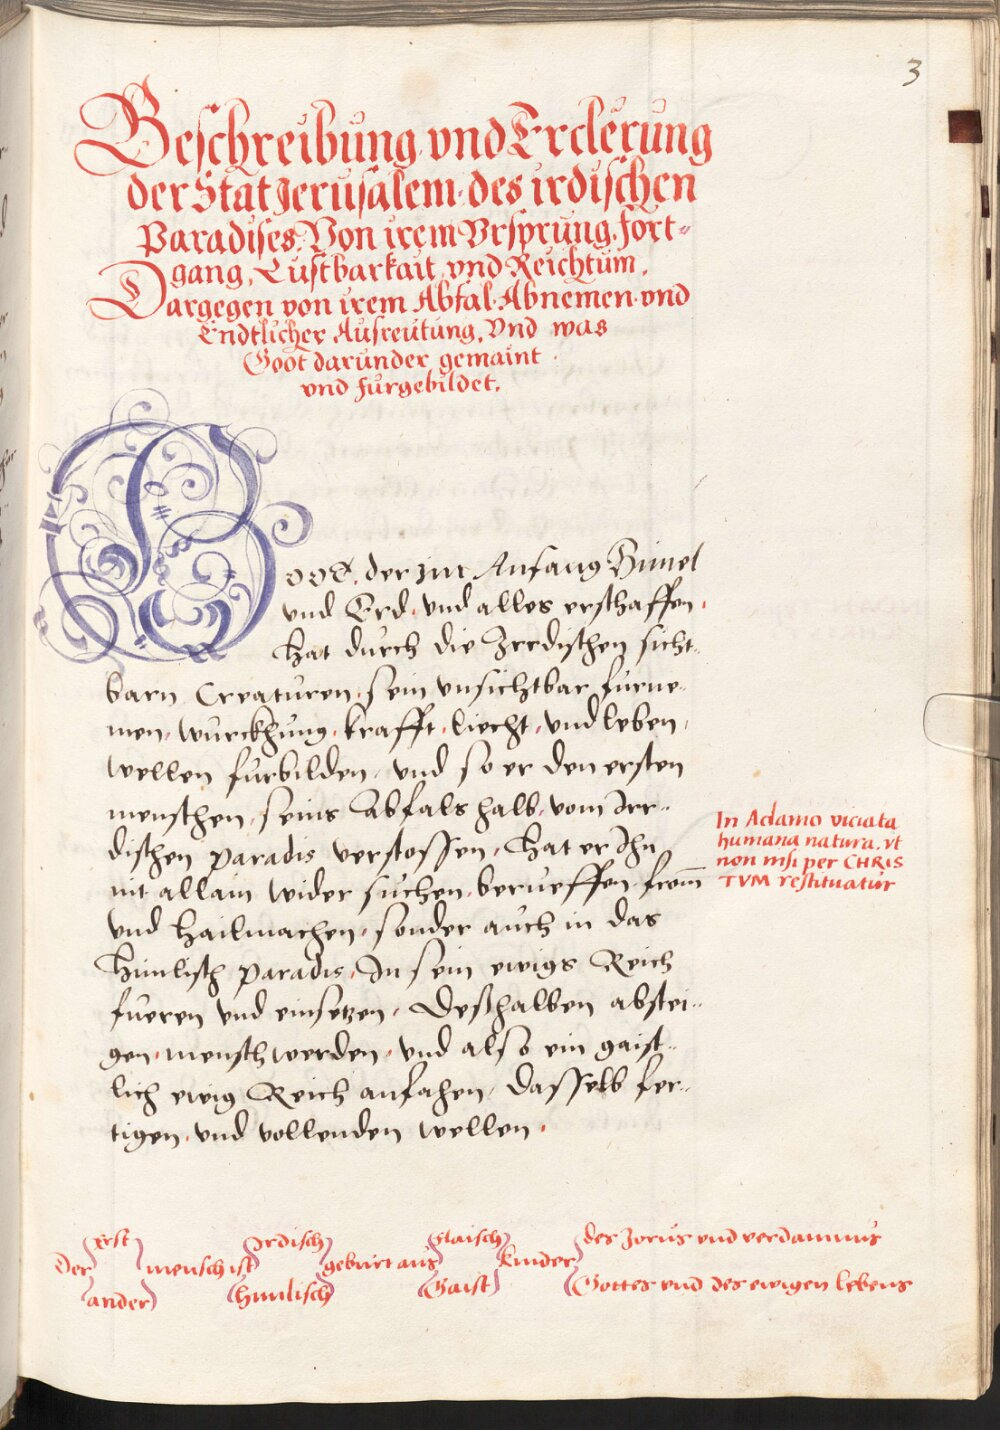 3
Beschreibung vnd Erclerung
der Stat Jerusalem. des irdischen
Paradises. Von irem Vrsprung. fort-
gang, Lustbarkait, vnd Reichtum,
Dargegen von irem Abfal. Abnemen. vnd
Endtlicher Ausreutung, Vnd was
Goot darunder gemaint
vnd furgebildet.
Goot, der zur Anfang Himel
vnd Erd, vnd alles erschaffen,
hat durch die Irrdischen sicht-
barn Creaturen, sein vnsichtbar furne-
men, wurckhung, krafft, liecht, vnd leben,
wellen furbilden, vnd so er den ersten
menschen, seins Abfals halb, vom Irr-
dischen paradis verstossen, hat er Ihn
nit allain wider suchen, berueffen, from̄
vnd hailmachen, sonder auch in das
himlisch paradis, In sein ewigs Reich
fueren vnd einsetzen, Deßhalben abstei-
gen, mensch werden, vnd also ein gaist-
lich ewig Reich anfahen, dasselb fer-
tigen, vnd vollenden wellen,
In Adamo viciata
humana natura. vt
non nisi per CHRIS
TVM restituatur
erst Irdisch flaisch des Zorns vnd verdamnus
Der mensch ist geburt aus kinder
ander himlisch Gaist Gottes vnd des ewigen lebens